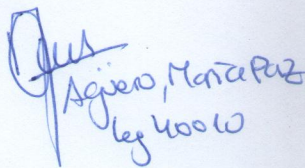 Agüero, María Paz
leg 40010